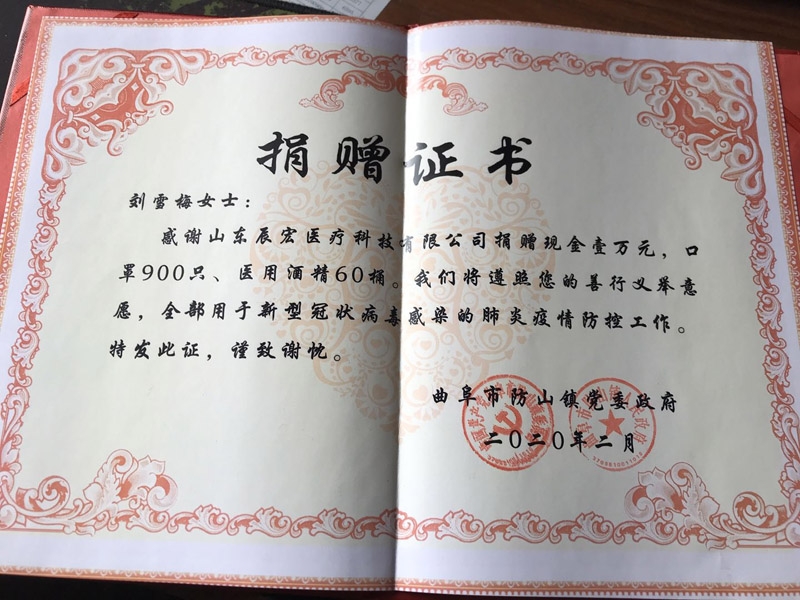 捐赠证书
刘雪梅女士：
感谢山东辰宏医疗科技有限公司捐赠现金壹万元，口
罩900只、医用酒精60桶。我们将遵照您的善行义举意
愿，全部用于新型冠状病毒感染的肺炎疫情防控工作。
特发此证，谨致谢忱。
曲阜市防山镇党委政府
二〇二〇年二月